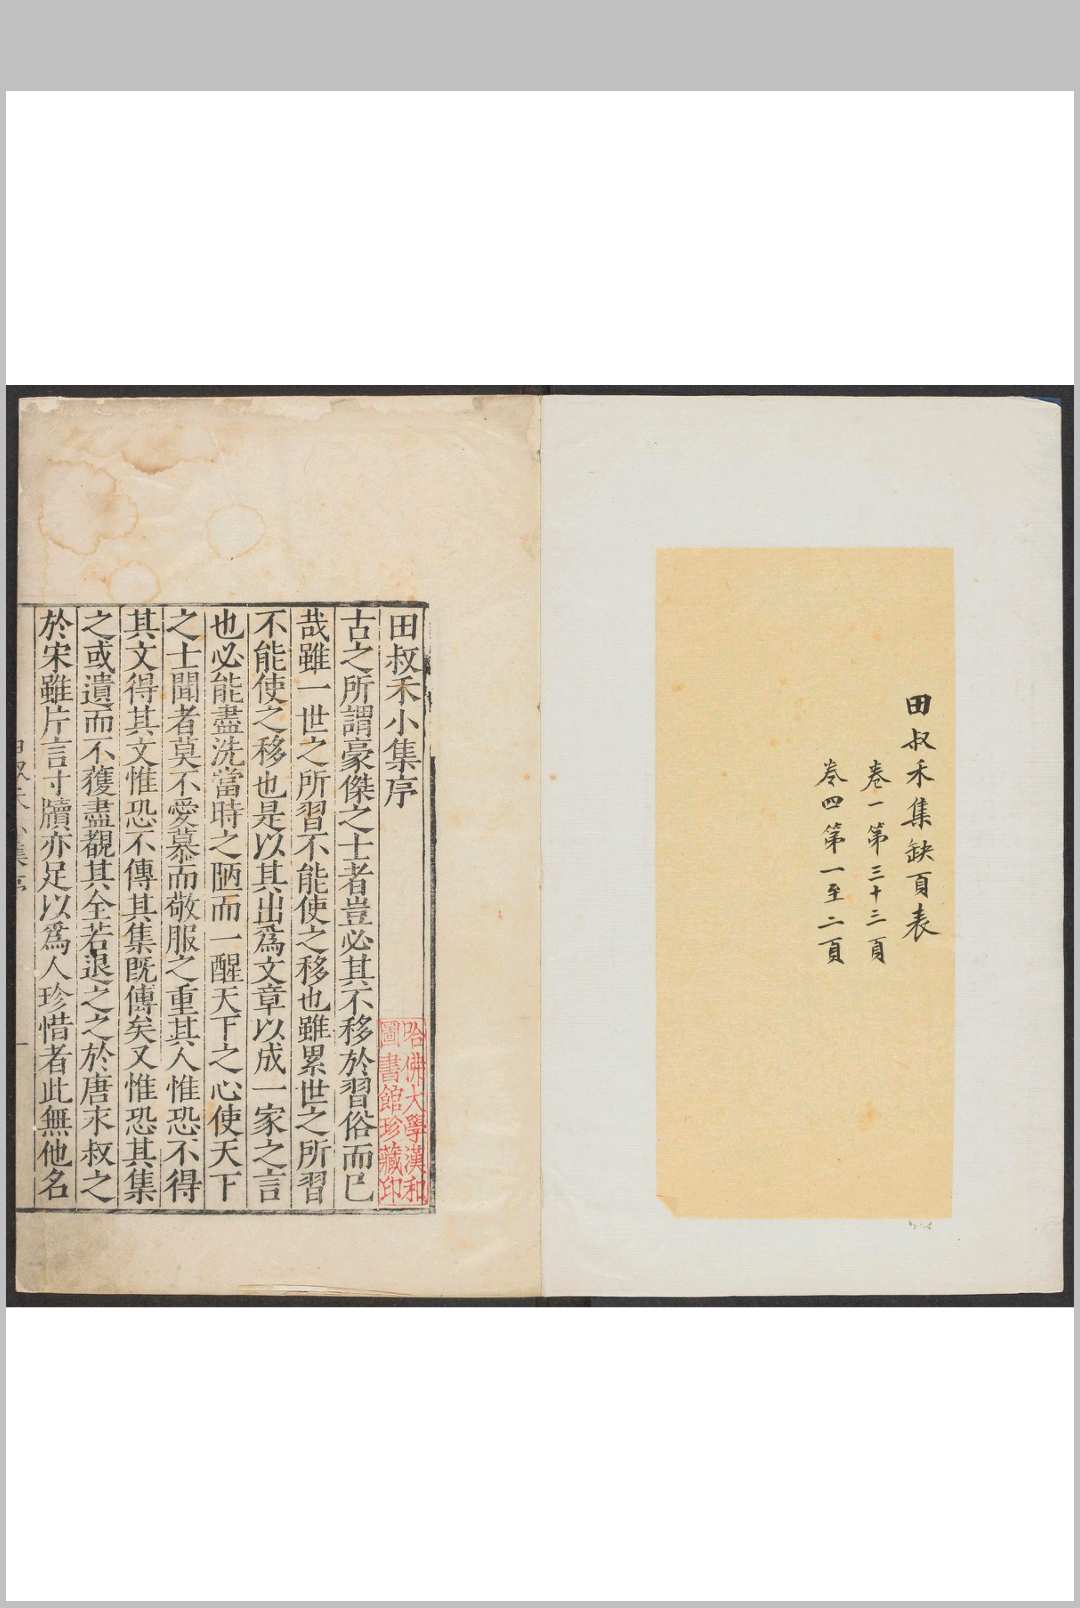 田叔禾集缺頁表
卷一第三十三頁
卷四第一至二頁
田叔禾小集序
古之所謂豪傑之士者豈必其不移於習俗而已
哉雖一世之所習不能使之移也雖累世之所習
不能使之移也是以其出爲文章以成一家之言
也必能盡洗當時之陋而一醒天下之心使天下
之士聞者莫不愛慕而敬服之重其人惟恐不得
其文得其文惟恐不傳其集既傳矣又惟恐其集
之或遺而不獲盡覩其全若退之之於唐永叔之
於宋雖片言寸牘亦足以爲人珍惜者此無他名
哈佛大學漢和
圖書館珍藏印